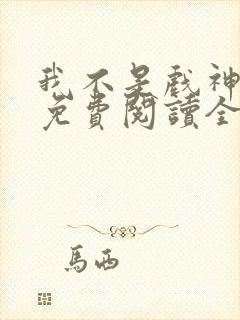 我不是戲神
免費閱讀全
馬西